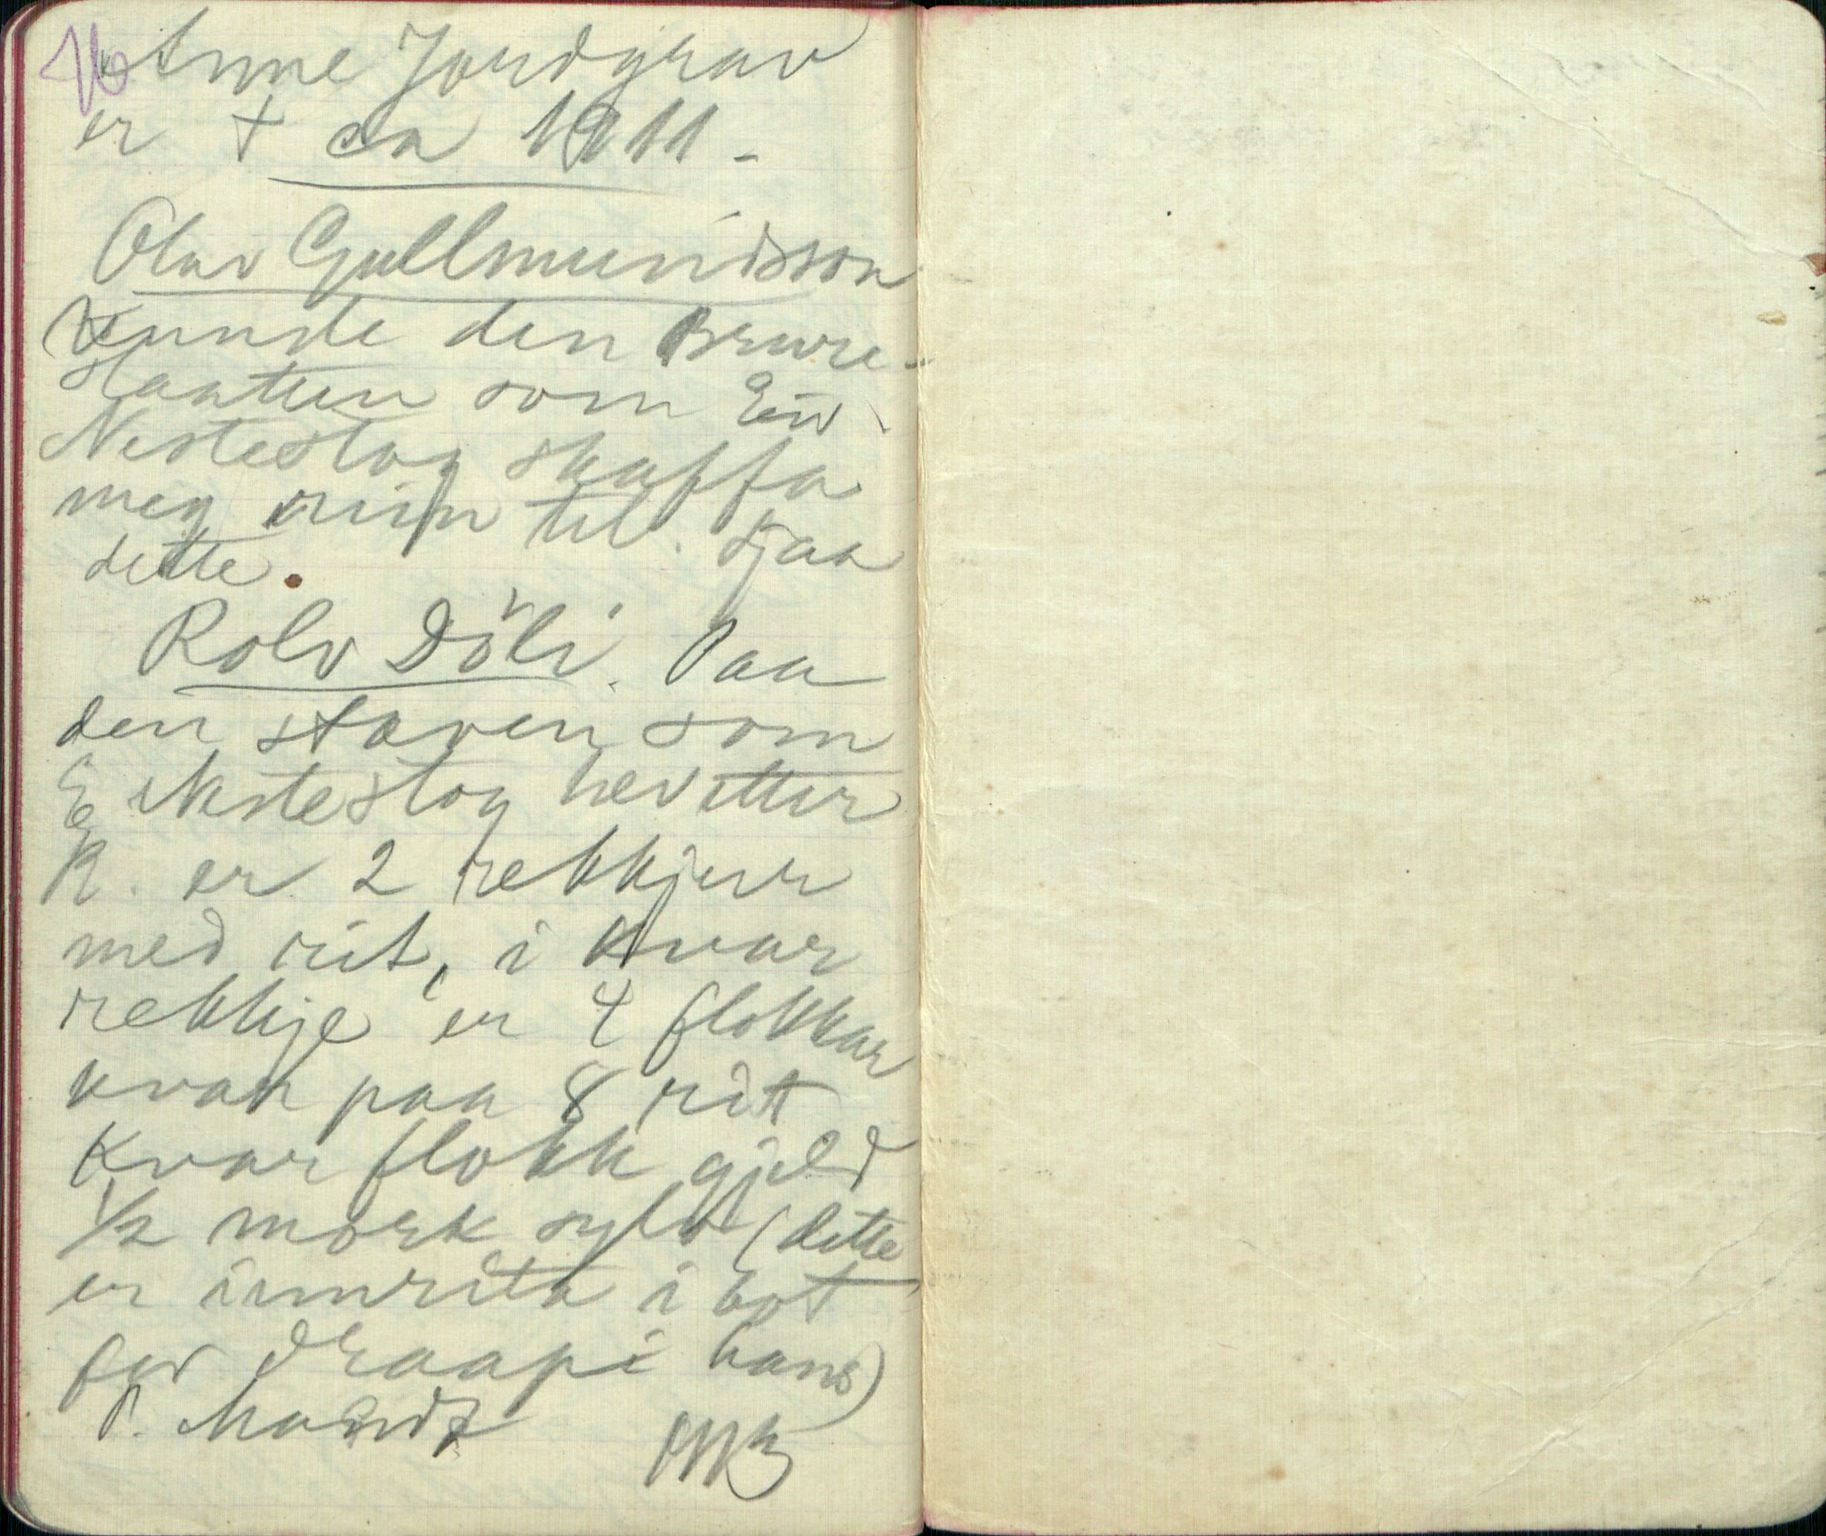 Anne Jordgrav
er + ca 1911 -
Olav Gullmundsson
kunde den Brure-
slaatten som Eiv
Nesteslog skaffa
meg riss til. Sjaa
dette.
Rolv Döli. Paa
den staven som
E Nesteslog hev etter
R. er 2 rekkjur
med rit, i kvar
rekkje er 4 flokkar
kvar paa 8 rit
Kvar flokk gjeld
1/2 mork sylv (dette
er innrita i bot
for draapi hans)
P. Mandt